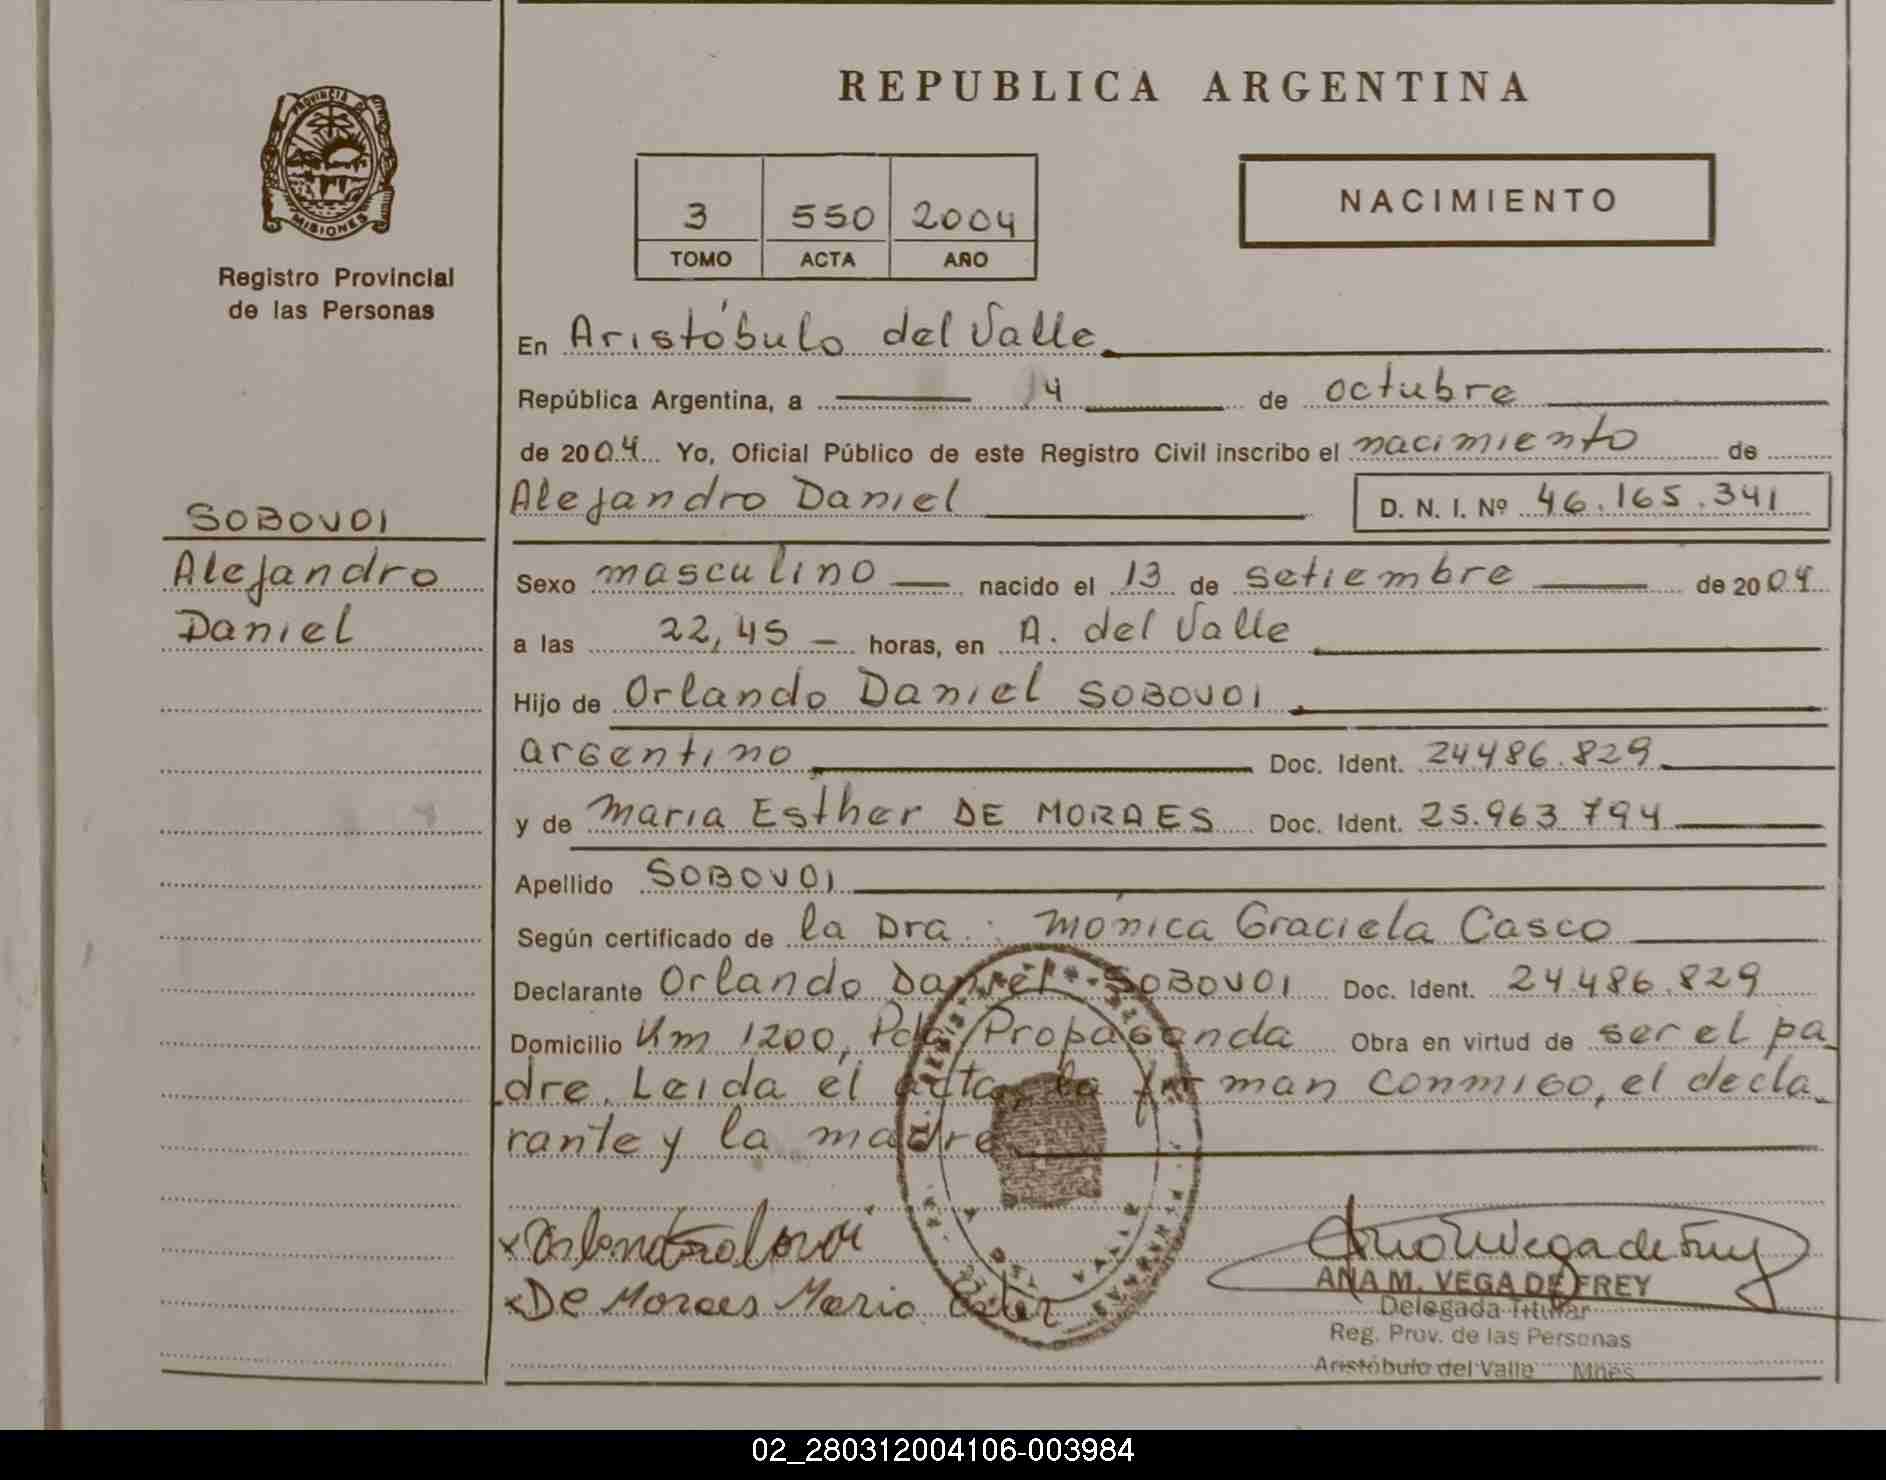 REPUBLICA ARGENTINA
PROVINCIA DE
MISIONES
Registro Provincial
de las Personas
3 550 2004
TOMO ACTA AÑO
NACIMIENTO
En Aristóbulo del Valle
República Argentina, a 14 de octubre
de 2004 Yo, Oficial Público de este Registro Civil inscribo el nacimiento de
Alejandro Daniel D. N. I. Nº 46.165.341
SOBOVOI
Alejandro
Daniel
Sexo masculino nacido el 13 de setiembre de 2004
a las 22,45 horas, en A. del Valle
Hijo de Orlando Daniel SOBOVOI
argentino Doc. Ident. 24486.829
y de Maria Esther DE MORAES Doc. Ident. 25.963.794
Apellido SOBOVOI
Según certificado de la Dra. : Mónica Graciela Casco
Declarante Orlando Daniel SOBOVOI Doc. Ident. 24.486.829
Domicilio Km 1200, Pda Propaganda Obra en virtud de ser el pa_
dre. Leida el acta, la firman conmigo, el decla_
rante y la madre
De Moraes Maria Ester
ANA M. VEGA DE FREY
Delegada Titular
Reg. Prov. de las Personas
Aristóbulo del Valle Mnes
02_280312004106-003984